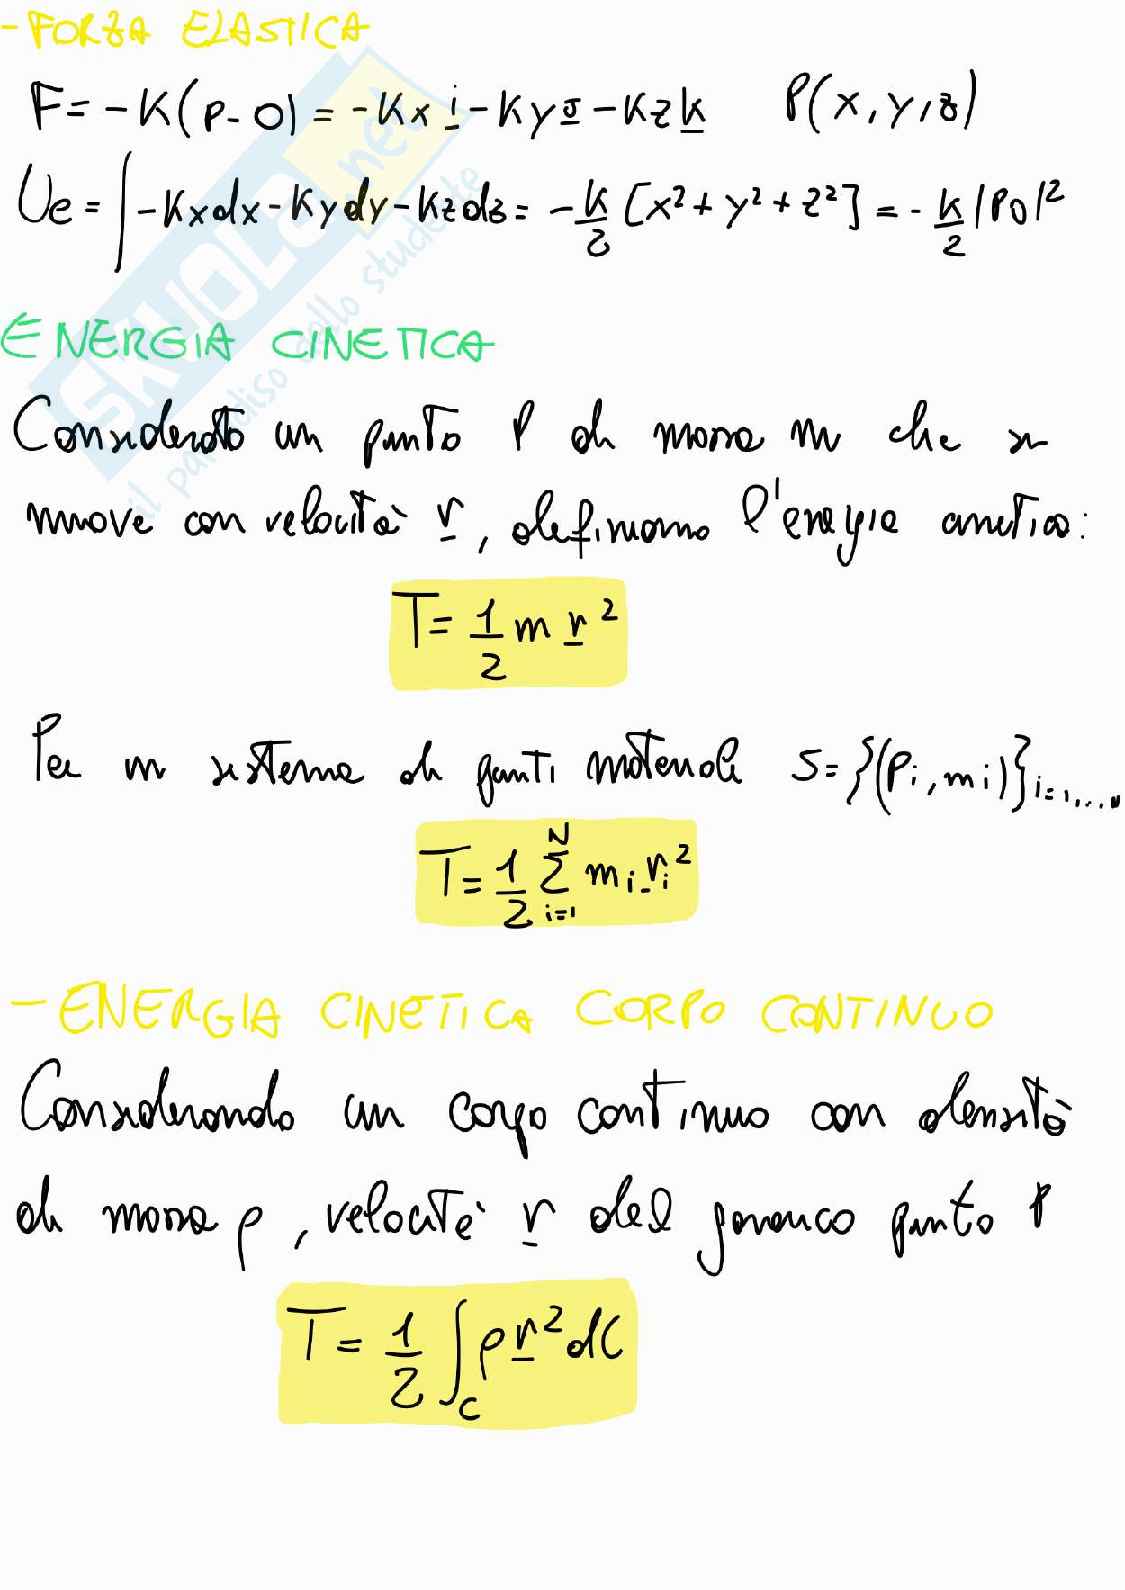 - FORZA ELASTICA
F = - K (P - O) = - Kx i - Ky j - Kz k P(x, y, z)
Ue = ∫ - Kxdx - Kydy - Kzdz = - k/2 [x² + y² + z²] = - k/2 |PO|²
ENERGIA CINETICA
Considerato un punto P di massa m che si
muove con velocità v, definiamo l'energia cinetica:
T = 1/2 m v²
Per un sistema di punti materiali S = {(Pi, mi)} i=1,...,N
T = 1/2 Σ i=1 N mi vi²
- ENERGIA CINETICA CORPO CONTINUO
Considerando un corpo continuo con densità
di massa ρ, velocità v del generico punto P
T = 1/2 ∫C ρ v² dC
SKUOLA.net
il paradiso dello studente